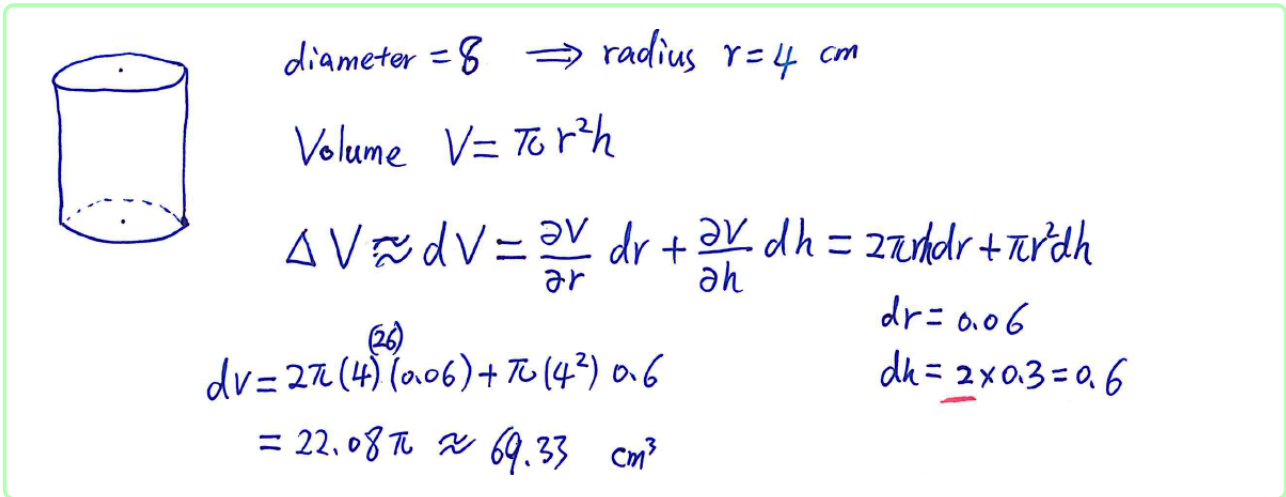 diameter = 8 ⟹ radius r = 4 cm
Volume V = πr²h
ΔV ≈ dV = ∂V/∂r dr + ∂V/∂h dh = 2πrhdr + πr²dh
dr = 0.06
dh = 2×0.3 = 0.6
dv = 2π(4)(26)(0.06) + π(4²) 0.6
= 22.08π ≈ 69.33 cm³